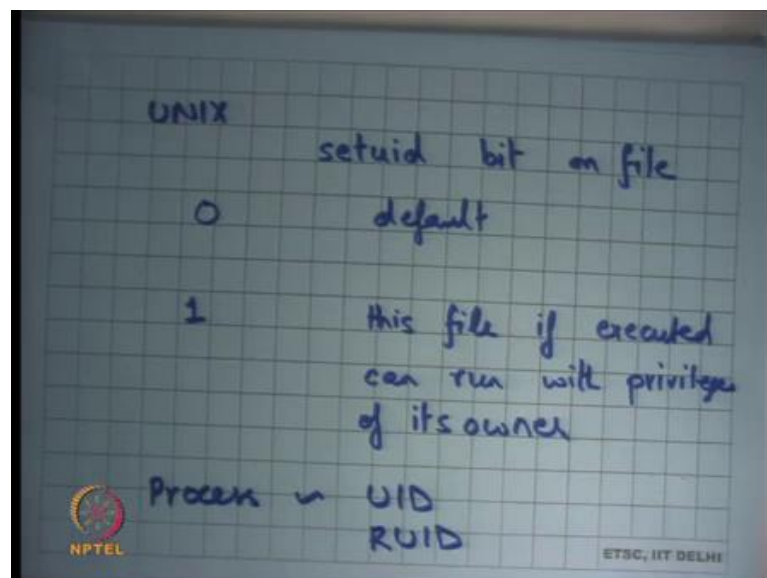 UNIX
setuid bit on file
0 default
1 this file if executed
can run with privileges
of its owner
Process ~ UID
RUID
NPTEL
ETSC, IIT DELHI